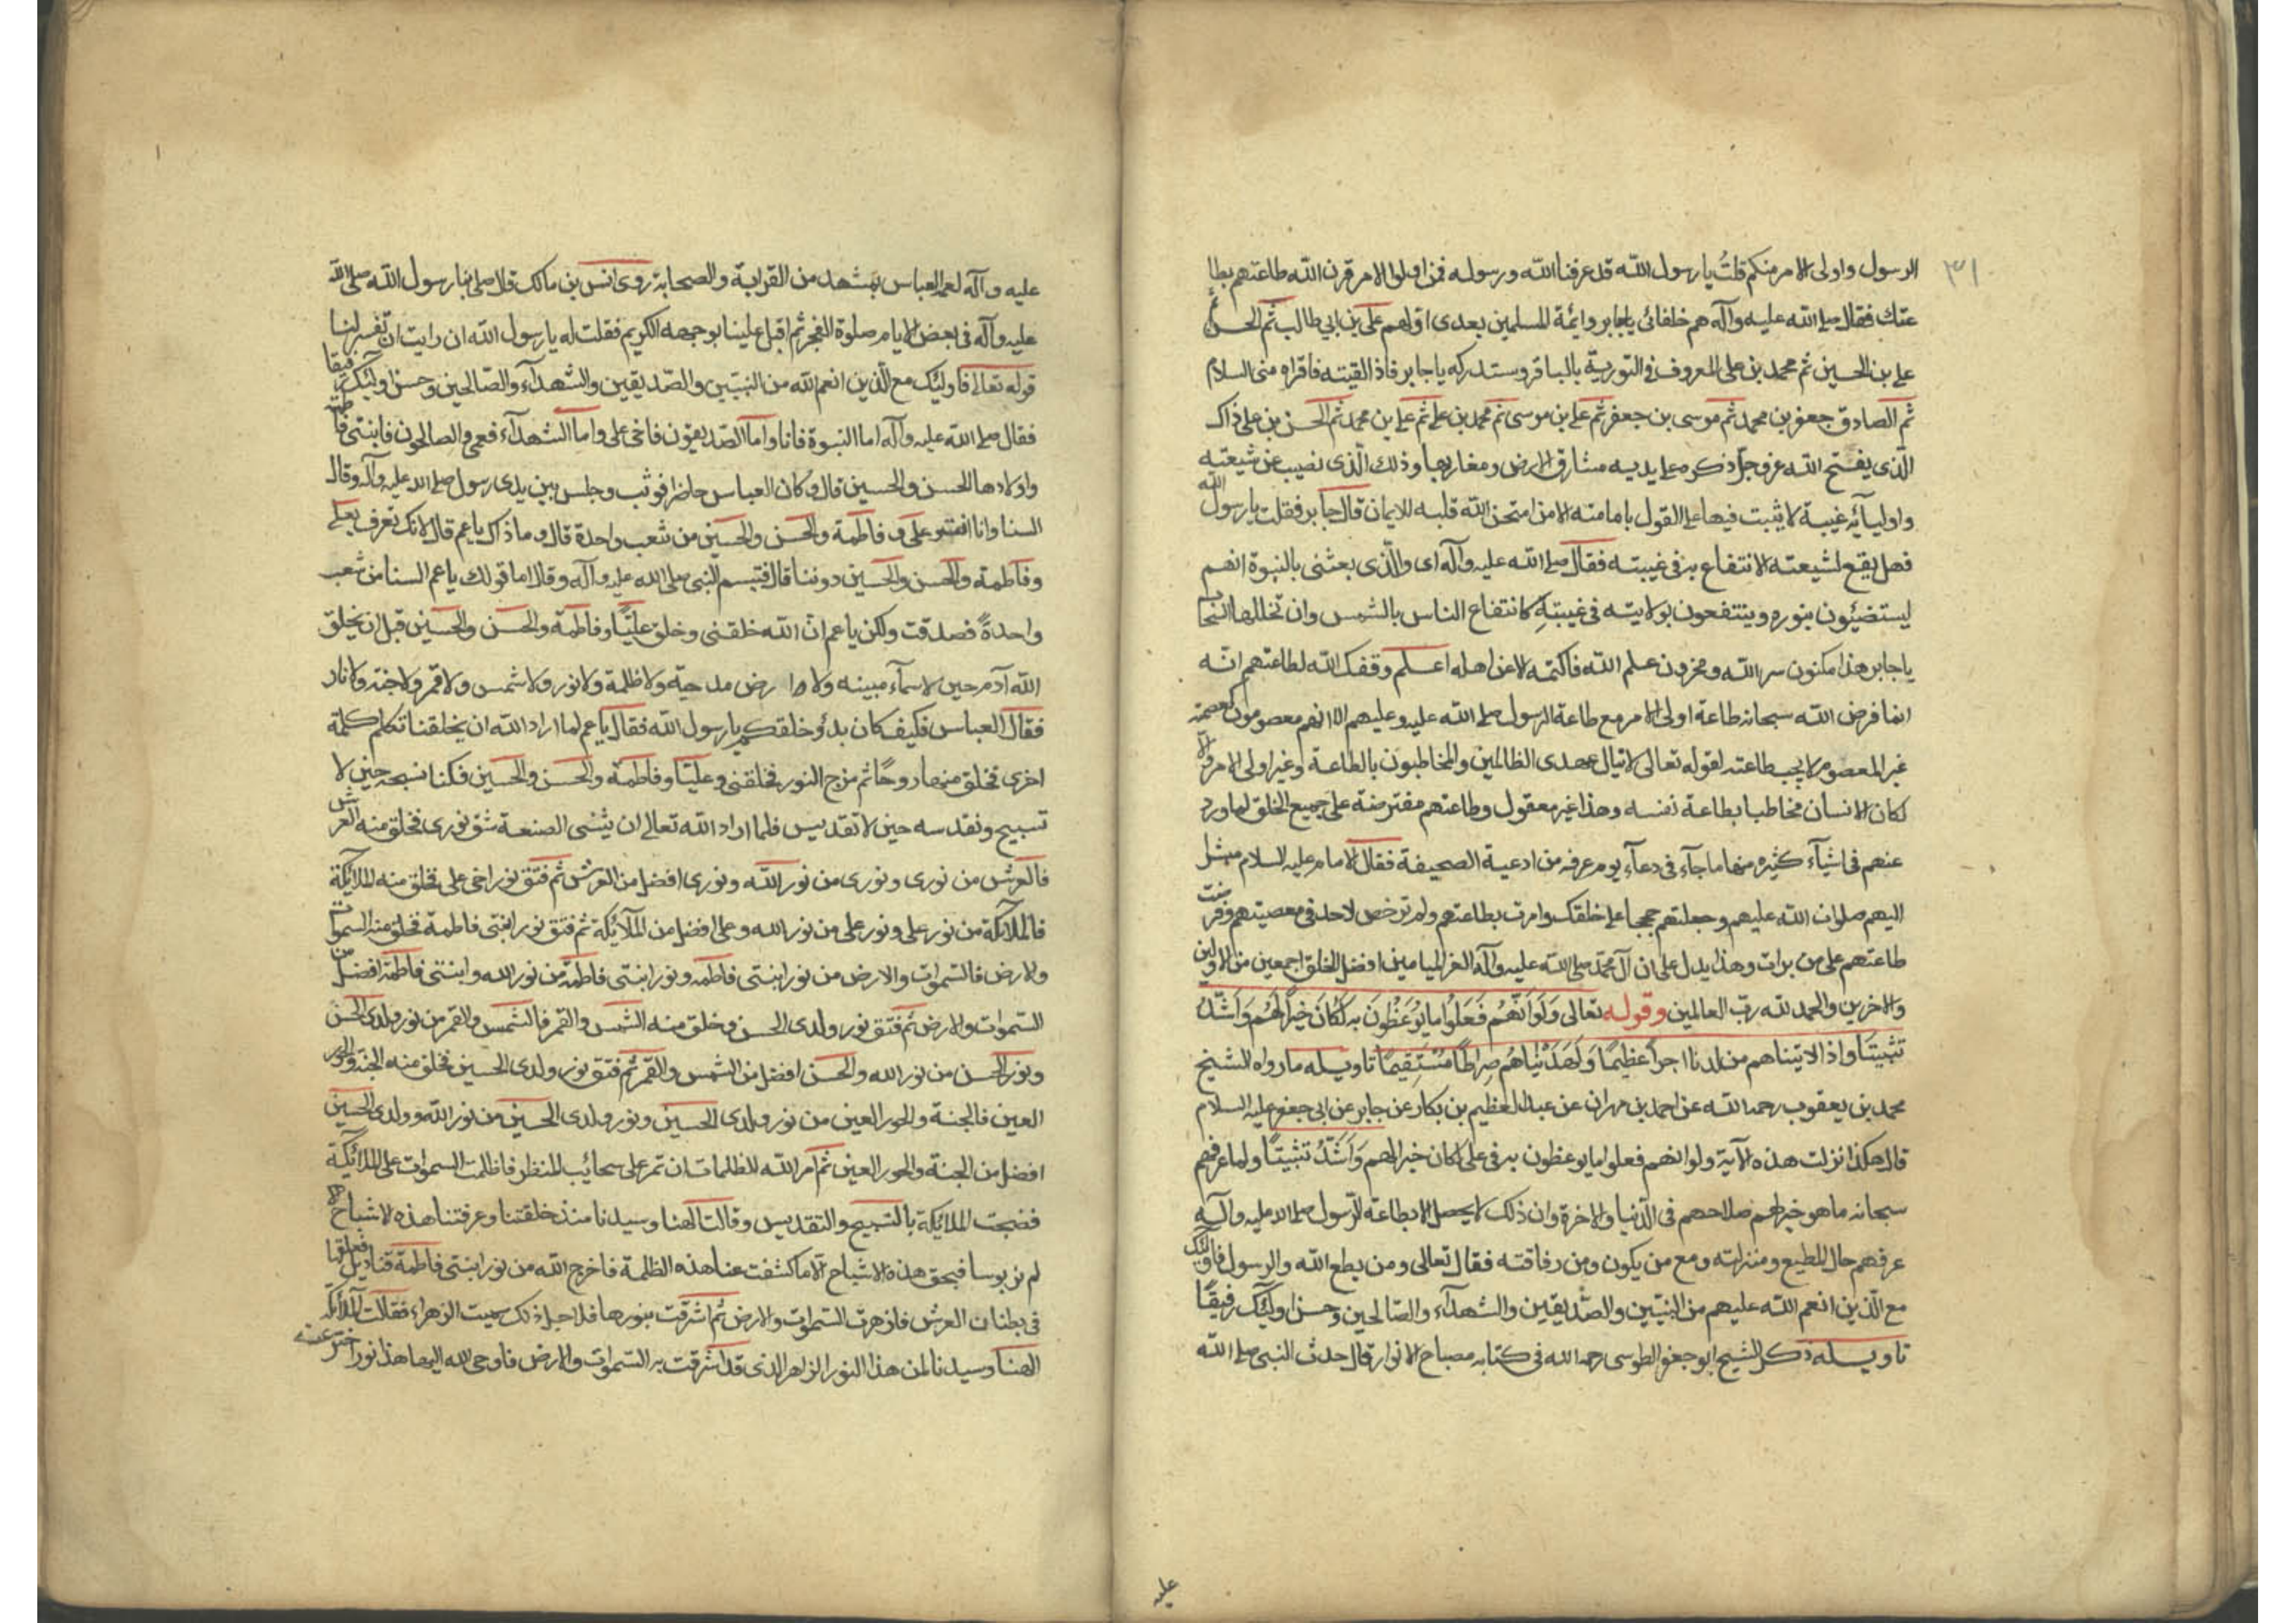 ٣١
الرسول واولى الامر منكم قلت يا رسول الله قد عرفنا الله ورسوله فمن اولوا الامر قرن الله طاعتهم بطا
عتك فقال صلى الله عليه وآله هم خلفائى يا جابر وائمة المسلمين بعدى اولهم على بن ابي طالب ثم الحسن ثم
على بن الحسين ثم محمد بن على المعروف في التورية بالباقر وستدركه يا جابر فاذا لقيته فاقراه منى السلام
ثم الصادق جعفر بن محمد ثم موسى بن جعفر ثم على بن موسى ثم محمد بن على ثم على بن محمد ثم الحسن بن على ذاك
الّذى يفتح الله عز وجل ذكره على يديه مشارق الارض ومغاربها وذلك الّذى يغيب عن شيعته
واوليآئه غيبة لا يثبت فيها على القول بامامته الا من امتحن الله قلبه للايمان قال جابر فقلت يا رسول الله
فهل يقع لشيعته الانتفاع به في غيبته فقال صلى الله عليه وآله اى والّذى بعثنى بالنبوة انهم
ليستضيئون بنوره وينتفعون بولايته في غيبته كانتفاع الناس بالشمس وان تخللها السحاب
يا جابر هذا مكنون سر الله ومخزون علم الله فاكتمه الا عن اهله اعلم وفقك الله لطاعتهم انه
انما فرض الله سبحانه طاعة اولى الامر مع طاعة الرسول صلى الله عليه وعليهم الا انهم معصومون كعصمته
غير المعصوم لا يجب طاعته لقوله تعالى لا ينال عهدى الظالمين والمخاطبون بالطاعة وغير اولى الامر والا
لكان الانسان مخاطبا بطاعة نفسه وهذا غير معقول وطاعتهم مفترضة على جميع الخلق لما ورد
عنهم في اشيآء كثيره منها ما جآء في دعآء يوم عرفه من ادعية الصحيفة فقال الامام عليه السلام مبتهل
اليهم صلوات الله عليهم وجعلتهم حججا على خلقك وامرت بطاعتهم ولم ترخص لاحد في معصيتهم وفرضت
طاعتهم على من برات وهذا يدل على ان آل محمّد صلى الله عليه وآله الغر الميامين افضل الخلق اجمعين من الاولين
والاخرين والحمد لله ربّ العالمين وقوله تعالى وَلَوْ اَنَّهُمْ فَعَلُوا ما يُوعَظُونَ بِه لَكانَ خَيْراً لَهُم وَاَشَدّ
تَثْبيتاً واذا لاتيناهم من لدنا اجراً عظيمًا وَلَهَدَيْناهُم صِراطًا مُسْتَقيمًا تاويله ما رواه الشيخ
محمد بن يعقوب رحمه الله عن احمد بن مهران عن عبد العظيم بن بكار عن جابر عن ابى جعفر عليه السلام
قال هكذا نزلت هذه الآية ولو انهم فعلوا ما يوعظون به في على لكان خيرا لهم وَاَشَدّ تثبيتًا ولما عرفهم
سبحانه ما هو خير لهم صلاحهم في الدّنيا والاخرة وان ذلك لا يحصل الا بطاعة الرّسول صلى الله عليه وآله
عرفهم حال المطيع ومنزلته ومع من يكون ومن رفاقته فقال تعالى ومن يطع الله والرسول فاولئك
مع الّذين انعم الله عليهم من النبيّين والصّديقين والشهدآء والصّالحين وحسن اولئك رفيقًا
تاويله ذكر الشيخ ابو جعفر الطوسى رحمه الله في كتابه مصباح الانوار قال حدث النبى صلى الله
عليه
عليه وآله لعمه العباس بمشهد من القرابة والصحابة روى انس بن مالك قال صلى بنا رسول الله صلى الله
عليه وآله في بعض الايام صلوة الفجر ثم اقبل علينا بوجهه الكريم فقلت له يا رسول الله ان رايت ان تفسر لنا
قوله تعالى فاولئك مع الّذين انعم الله من النبيّين والصّديقين والشهدآء والصّالحين وحسن اولئك رفيقا
فقال صلى الله عليه وآله اما النبوة فانا واما الصّديقون فاخى على واما الشهدآء فعمى والصالحون فابنتى فاطمة
واولادها الحسن والحسين قال وكان العباس حاضرا فوثب وجلس بين يدى رسول صلى الله عليه وآله وقال
السنا وانا انت وعلى وفاطمة والحسن والحسين من شعب واحدة قال وما ذاك يا عم قال لانك تعرف بعلى
وفاطمة والحسن والحسين دوننا قال فتبسم النبى صلى الله عليه وآله وقال اما قولك يا عم السنا من شعب
واحدةً فصدقت ولكن يا عم انّ الله خلقنى وخلق عليًّا وفاطمة والحسن والحسين قبل ان يخلق
الله آدم حين لا سمآء مبينه ولا ارض مدحية ولا ظلمة ولا نور ولا شمس ولا قمر ولا جنة ولا نار
فقال العباس فكيف كان بدؤ خلقكم يا رسول الله فقال يا عم لما اراد الله ان يخلقنا تكلم كلمة
اخرى فخلق منها روحًا ثم مزج النور فخلقنى وعليّا وفاطمة والحسن والحسين فكنا نسبحه حين لا
تسبيح ونقدسه حين لا تقديس فلما اراد الله تعالى ان ينشى الصنعة شق نورى فخلق منه العرش
فالعرش من نورى ونورى من نور الله ونورى افضل من العرش ثم فتق نور اخى على فخلق منه الملائكة
فالملائكة من نور على ونور على من نور الله وعلى افضل من الملآئكة ثم فتق نور ابنتى فاطمة فخلق منه السموات
والارض فالسّموات والارض من نور ابنتى فاطمه ونور ابنتى فاطمة من نور الله وابنتى فاطمة افضل من
السّموات والارض ثم فتق نور ولدى الحسن وخلق منه الشمس والقمر فالشمس والقمر من نور ولدى الحسن
ونور الحسن من نور الله والحسن افضل من الشمس والقمر ثم فتق نور ولدى الحسين فخلق منه الجنة والحور
العين فالجنة والحور العين من نور ولدى الحسين ونور ولدى الحسين من نور الله وولدى الحسين
افضل من الجنة والحور العين ثم امر الله الظلمات ان تمر على سحائب المنظر فاظلمت السموات على الملائكة
فضجت الملائكة بالتسبيح والتقديس وقالت الهنا وسيدنا منذ خلقتنا وعرفتنا هذه الاشباح
لم نر بوسا فبحق هذه الاشباح الا ما كشفت عنا هذه الظلمة فاخرج الله من نور ابنتى فاطمة قناديل فعلقها
فى بطنان العرش فازهرت السّموات والارض ثم اشرقت بنورها فلاجل ذلك سميت الزهراء فقالت الملائكة
الهنا وسيدنا لمن هذا النور الزاهر الذى قد اشرقت به السّموات والارض فاوحى الله اليها هذا نور اخترعته